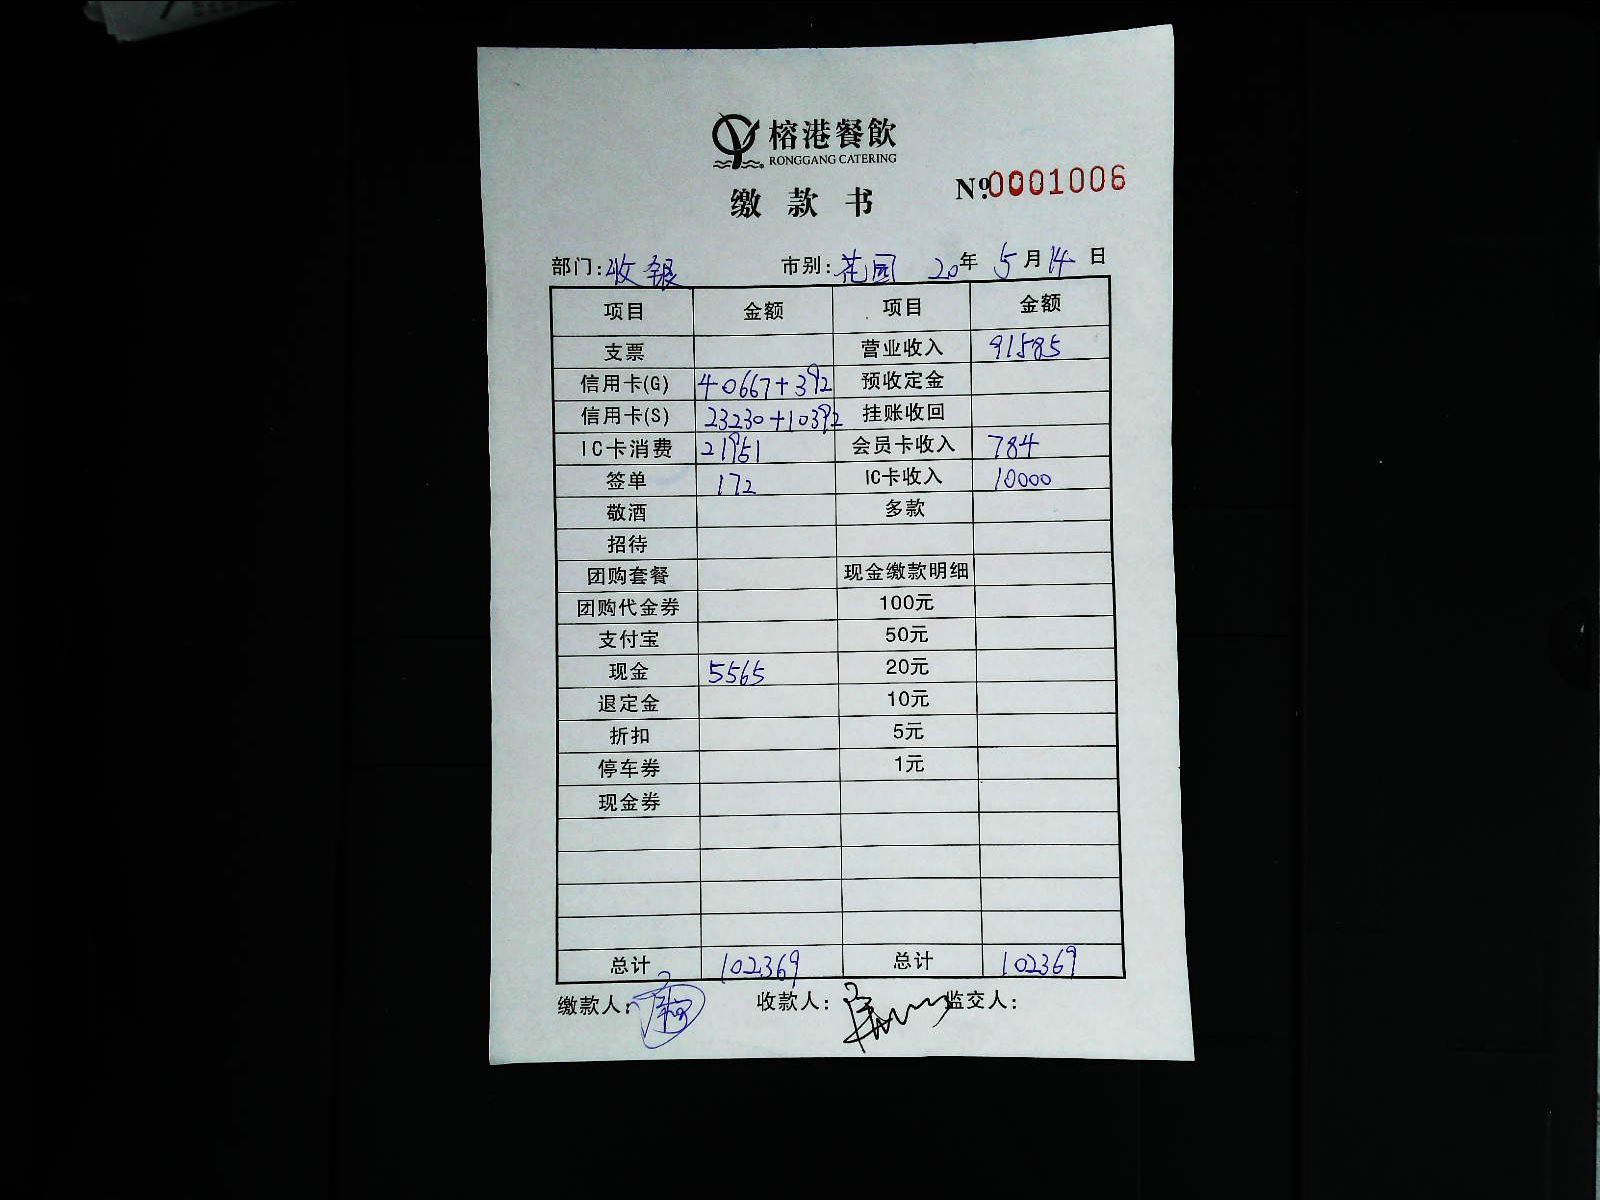 榕港餐飲
RONGGANG CATERING
缴款书 Nº.0001006
部门:收银 市别:花园 20年 5月14日
项目 金额 项目 金额
支票 营业收入 91585
信用卡(G) 40667+392 预收定金
信用卡(S) 23230+10392 挂账收回
IC卡消费 21951 会员卡收入 784
签单 172 IC卡收入 10000
敬酒 多款
招待
团购套餐 现金缴款明细
团购代金券 100元
支付宝 50元
现金 5565 20元
退定金 10元
折扣 5元
停车券 1元
现金券
总计 102369 总计 102369
缴款人: 收款人: 监交人: